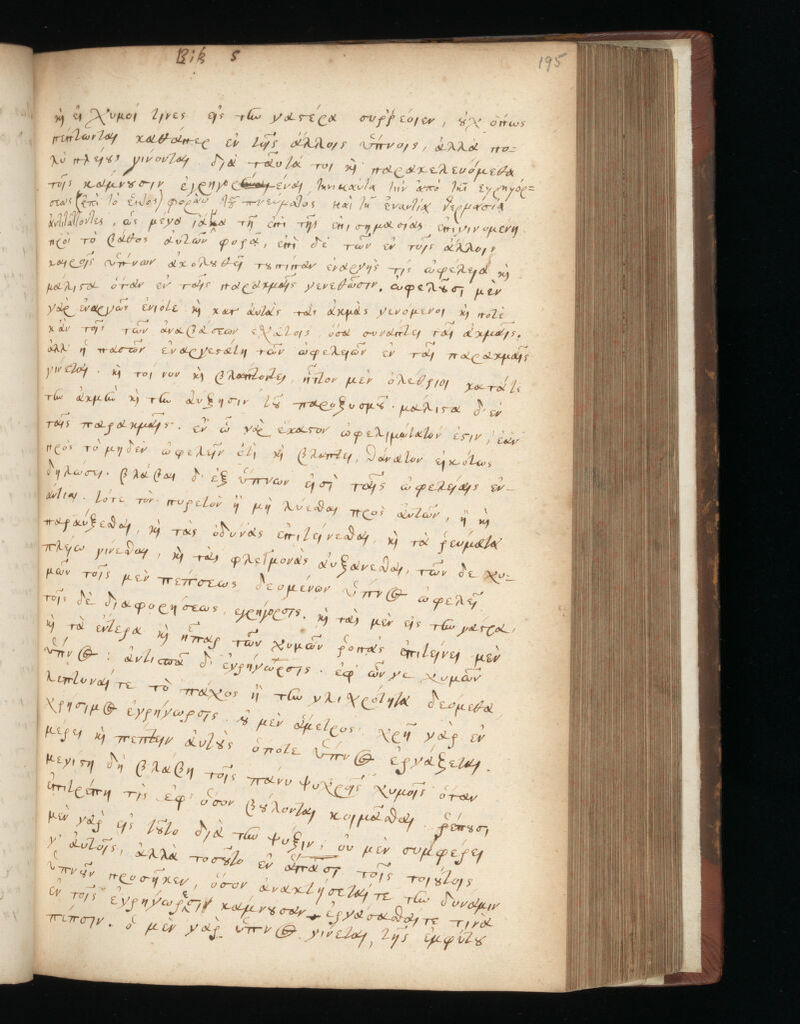 Βιβ ς
195
κ̀ εἰ χυμοί τινες εἰς τὴν γαστέρα συρρέοιεν, οὐχ ὅπως
πέπτονται καθάπερ ἐν τοῖς ἄλλοις ὕπνοις, ἀλλὰ πο-
λὺ πλείους γίνονται. διὰ ταῦτά τοι κ̀ παρακελευόμεθα
τοῖς κάμνουσιν ἐγρηγορέναι, τηνικαῦτα τὴν ἀπὸ τῆς ἐγρηγόρ-
σεως (ἐπὶ τὸ ἐκτὸς) φορὰν τοῦ πνεύματος καὶ τῇ ἐναντίᾳ θερμασίᾳ
ἀντιτάττοντες, ὡς μέγα ἴαμα τῇ ἐπὶ τῆς ἐπισημασίας ἐπιγινομένῃ
πρὸς τὸ βάθος αὐτῶν φορᾷ, ἐπὶ δὲ τῶν ἐν τοῖς ἄλλοις
καιροῖς ὕπνων ἀκολουθεῖ τουπίπαν ἐναργής τις ὠφέλεια κ̀
μάλιστα ὅταν ἐν ταῖς παρακμαῖς γενεθῶσιν. ὠφελοῦσι μὲν
γὰρ ἐναργῶς ἐνίοτε κ̀ κατ᾽ αὐτὰς τὰς ἀκμὰς γενόμενοι κ̀ ποτὲ
κἀν τοῖς τῶν ἀναβάσεων ἐσχάτοις ὅσα συνάπτει ταῖς ἀκμαῖς.
ἀλλ᾽ ἡ πασῶν ἐναργεστάτη τῶν ὠφελειῶν ἐν ταῖς παρακμαῖς
γίνεται. κ̀ τοίνυν κ̀ βλάπτοντες, ἧττον μὲν ὀλέθριοι κατά τε
τὴν ἀκμὴν κ̀ τὴν αὔξησιν τοῦ παροξυσμοῦ. μάλιστα δ᾽ ἐν
ταῖς παρακμαῖς. ἐν ᾧ γὰρ ἕκαστον ὠφελιμώτατόν ἐστιν, ἐὰν
πρὸς τὸ μηδὲν ὠφελεῖν ἔτι κ̀ βλάπτει, θάνατον εἰκότως
δηλώσει. βλάβαι δ᾽ ἐξ ὕπνων εἰσὶ ταῖς ὠφελείαις ἐν-
αντίαι. τό τε τὸν πυρετὸν ἢ μὴ λύεσθαι πρὸς αὐτῶν, ἢ κ̀
παραύξεσθαι, κ̀ τὰς ὀδύνας ἐπιτείνεσθαι, κ̀ τὰ ῥεύματα
πλείω γίνεσθαι, κ̀ τὰς φλεγμονὰς αὐξάνεσθαι, τῶν δὲ χυ-
μῶν τοῖς μὲν πέψεως δεομένων ὕπνος ὠφελεῖ
τοῖς δὲ διαφορήσεως, ἐγρήγορσις. κ̀ τὰς μὲν εἰς τὴν γαστέρα
κ̀ τὰ ἔντερα κ̀ ἧπαρ τῶν χυμῶν ῥοπὰς ἐπιτείνει μὲν
ὕπνος: ἀντισπᾷ δ᾽ ἐγρήγορσις. ἐφ᾽ ὧν γε χυμῶν
λεπτῦναί τε τὸ πάχος ἢ τὴν γλισχρότητα δεόμεθα,
χρήσιμος ἐγρήγορσις. οὐ μὲν ἄμετρος. χρὴ γὰρ ἐν
μέρει κ̀ πέπτειν αὐτοὺς ὁπότε ὕπνος ἐργάζεται.
μεγίστη δὴ βλάβη τοῖς πάνυ ψυχροῖς χυμοῖς ὅταν
ἐπιτρέπῃ τις ἐφ᾽ ὅσον βούλονται κοιμᾶσθαι. ῥέπουσι
μὲν γὰρ εἰς τοῦτο διὰ τὴν ψύξιν, οὐ μὲν συμφέρει
γ᾽ αὐτοῖς, ἀλλὰ τοσοῦτο ἐν ἅπασι τοῖς τοιούτοις
ὑπνοῦν προσῆκεν, ὅσον ἀνακτήσεταί τε τὴν δύναμιν
ἐν τοῖς ἐγρηγόρσεσιν κάμνουσαν ἐργάσασθαί τε τινὰ
πέψιν. ὁ μὲν γὰρ ὕπνος γίνεται, τῆς ἐμφύτου